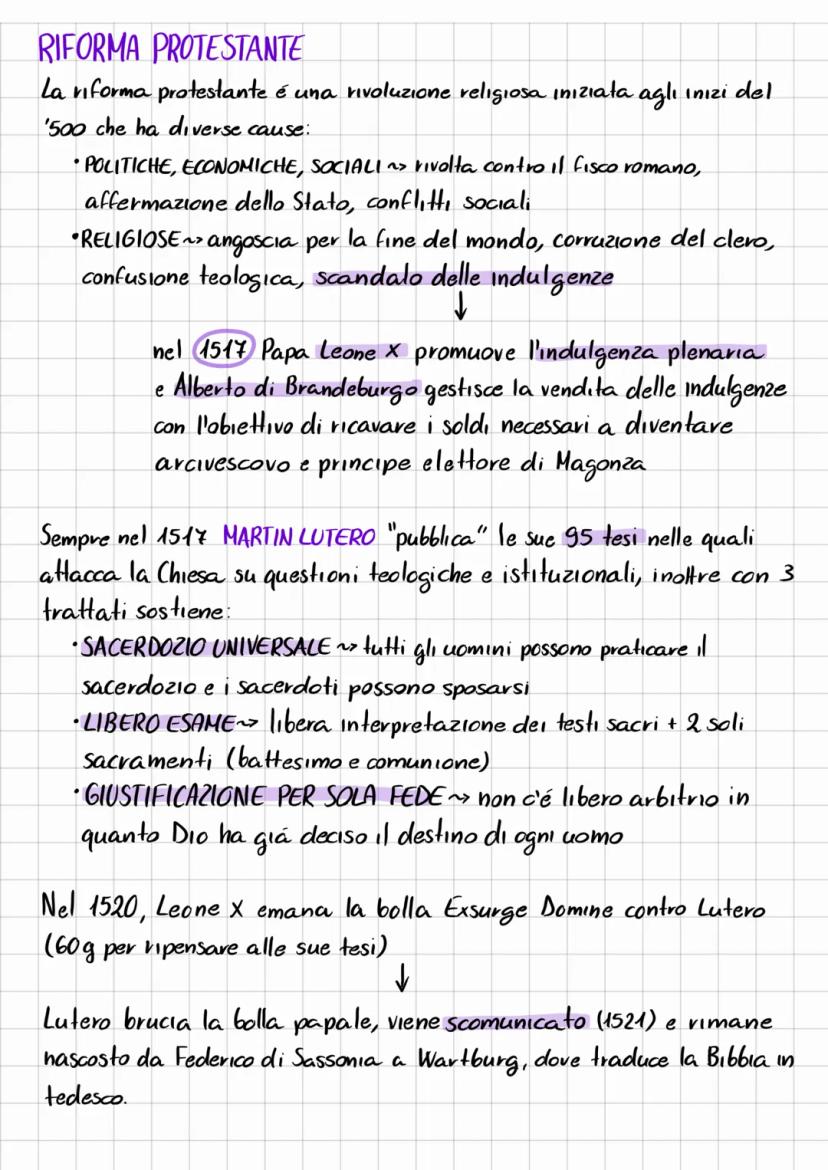 RIFORMA PROTESTANTE
La riforma protestante é una rivoluzione religiosa iniziata agli inizi del
'500 che ha diverse cause:
• POLITICHE, ECONOMICHE, SOCIALI ~> rivolta contro il fisco romano,
affermazione dello Stato, conflitti sociali
• RELIGIOSE ~> angoscia per la fine del mondo, corruzione del clero,
confusione teologica, scandalo delle indulgenze
↓
nel 1517 Papa Leone X promuove l'indulgenza plenaria
e Alberto di Brandeburgo gestisce la vendita delle indulgenze
con l'obiettivo di ricavare i soldi necessari a diventare
arcivescovo e principe elettore di Magonza
Sempre nel 1517 MARTIN LUTERO "pubblica" le sue 95 tesi nelle quali
attacca la Chiesa su questioni teologiche e istituzionali, inoltre con 3
trattati sostiene:
• SACERDOZIO UNIVERSALE ~> tutti gli uomini possono praticare il
sacerdozio e i sacerdoti possono sposarsi
• LIBERO ESAME ~> libera interpretazione dei testi sacri + 2 soli
sacramenti (battesimo e comunione)
• GIUSTIFICAZIONE PER SOLA FEDE ~> non c'é libero arbitrio in
quanto Dio ha giá deciso il destino di ogni uomo
Nel 1520, Leone X emana la bolla Exsurge Domine contro Lutero
(60g per ripensare alle sue tesi)
↓
Lutero brucia la bolla papale, viene scomunicato (1521) e rimane
nascosto da Federico di Sassonia a Wartburg, dove traduce la Bibbia in
tedesco.